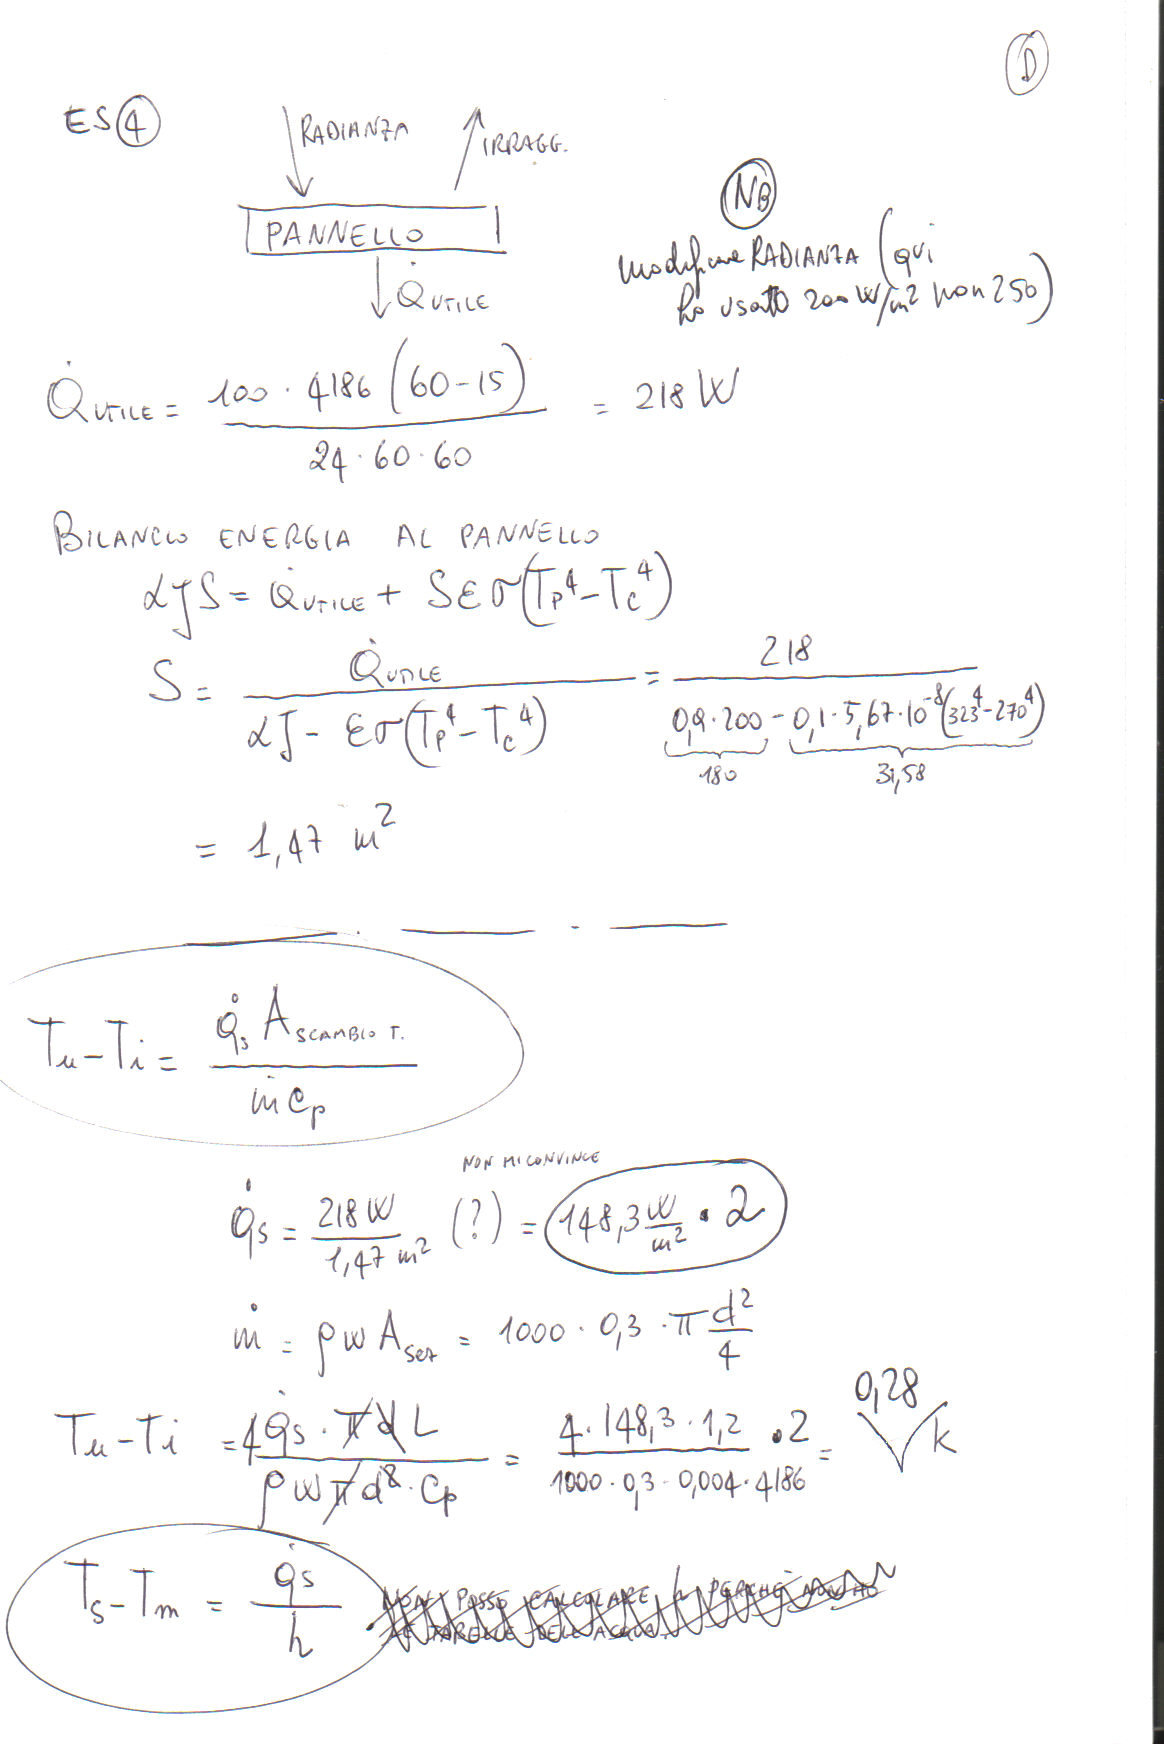 D
ES 4
RADIANZA
IRRAGG.
PANNELLO
Q̇UTILE
NB
modificare RADIANZA (qui
ho usato 200 W/m² non 250)
Q̇UTILE = 100 · 4186 (60-15) / 24 · 60 · 60 = 218 W
BILANCIO ENERGIA AL PANNELLO
αJS = Q̇UTILE + SEσ(Tp⁴ - Tc⁴)
S = Q̇UTILE / αJ - Eσ(Tp⁴ - Tc⁴) = 218 / 0,9·200 - 0,1·5,67·10⁻⁸(323⁴-270⁴)
180
31,58
= 1,47 m²
Tu - Ti = q̇s A SCAMBIO T. / ṁ cp
NON MI CONVINCE
q̇s = 218 W / 1,47 m² (?) = 148,3 W/m² · 2
ṁ = ρ w Asez = 1000 · 0,3 · π d²/4
Tu - Ti = 4 q̇s · π d L / ρ w π d² · cp = 4 · 148,3 · 1,2 / 1000 · 0,3 · 0,004 · 4186 · 2 = 0,28 K
Ts - Tm = q̇s / h
NON POSSO CALCOLARE h PERCHÈ NON HO
LE TABELLE DELL'ACQUA.